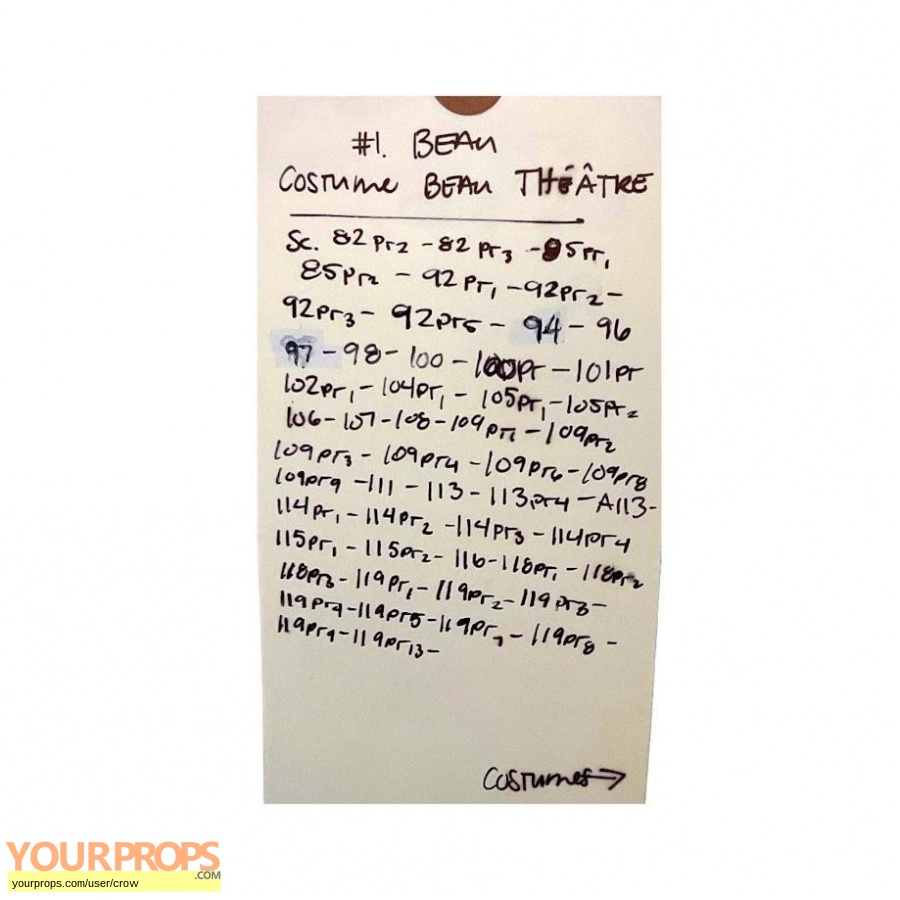 #1. BEAU
COSTUME BEAU THÉÂTRE
Sc. 82pr2 - 82pr3 - 85pr1
85pr2 - 92pr1 - 92pr2 -
92pr3 - 92pr5 - 94 - 96
97 - 98 - 100 - 100pr - 101pr
102pr1 - 104pr1 - 105pr1 - 105pr2
106 - 107 - 108 - 109pr1 - 109pr2
109pr3 - 109pr4 - 109pr6 - 109pr8
109pr9 - 111 - 113 - 113pr4 - A113 -
114pr1 - 114pr2 - 114pr3 - 114pr4
115pr1 - 115pr2 - 116 - 118pr1 - 118pr2
118pr3 - 119pr1 - 119pr2 - 119pr3 -
119pr4 - 119pr5 - 119pr7 - 119pr8 -
119pr9 - 119pr13 -
COSTUMES →
YOURPROPS
.COM
yourprops.com/user/crow